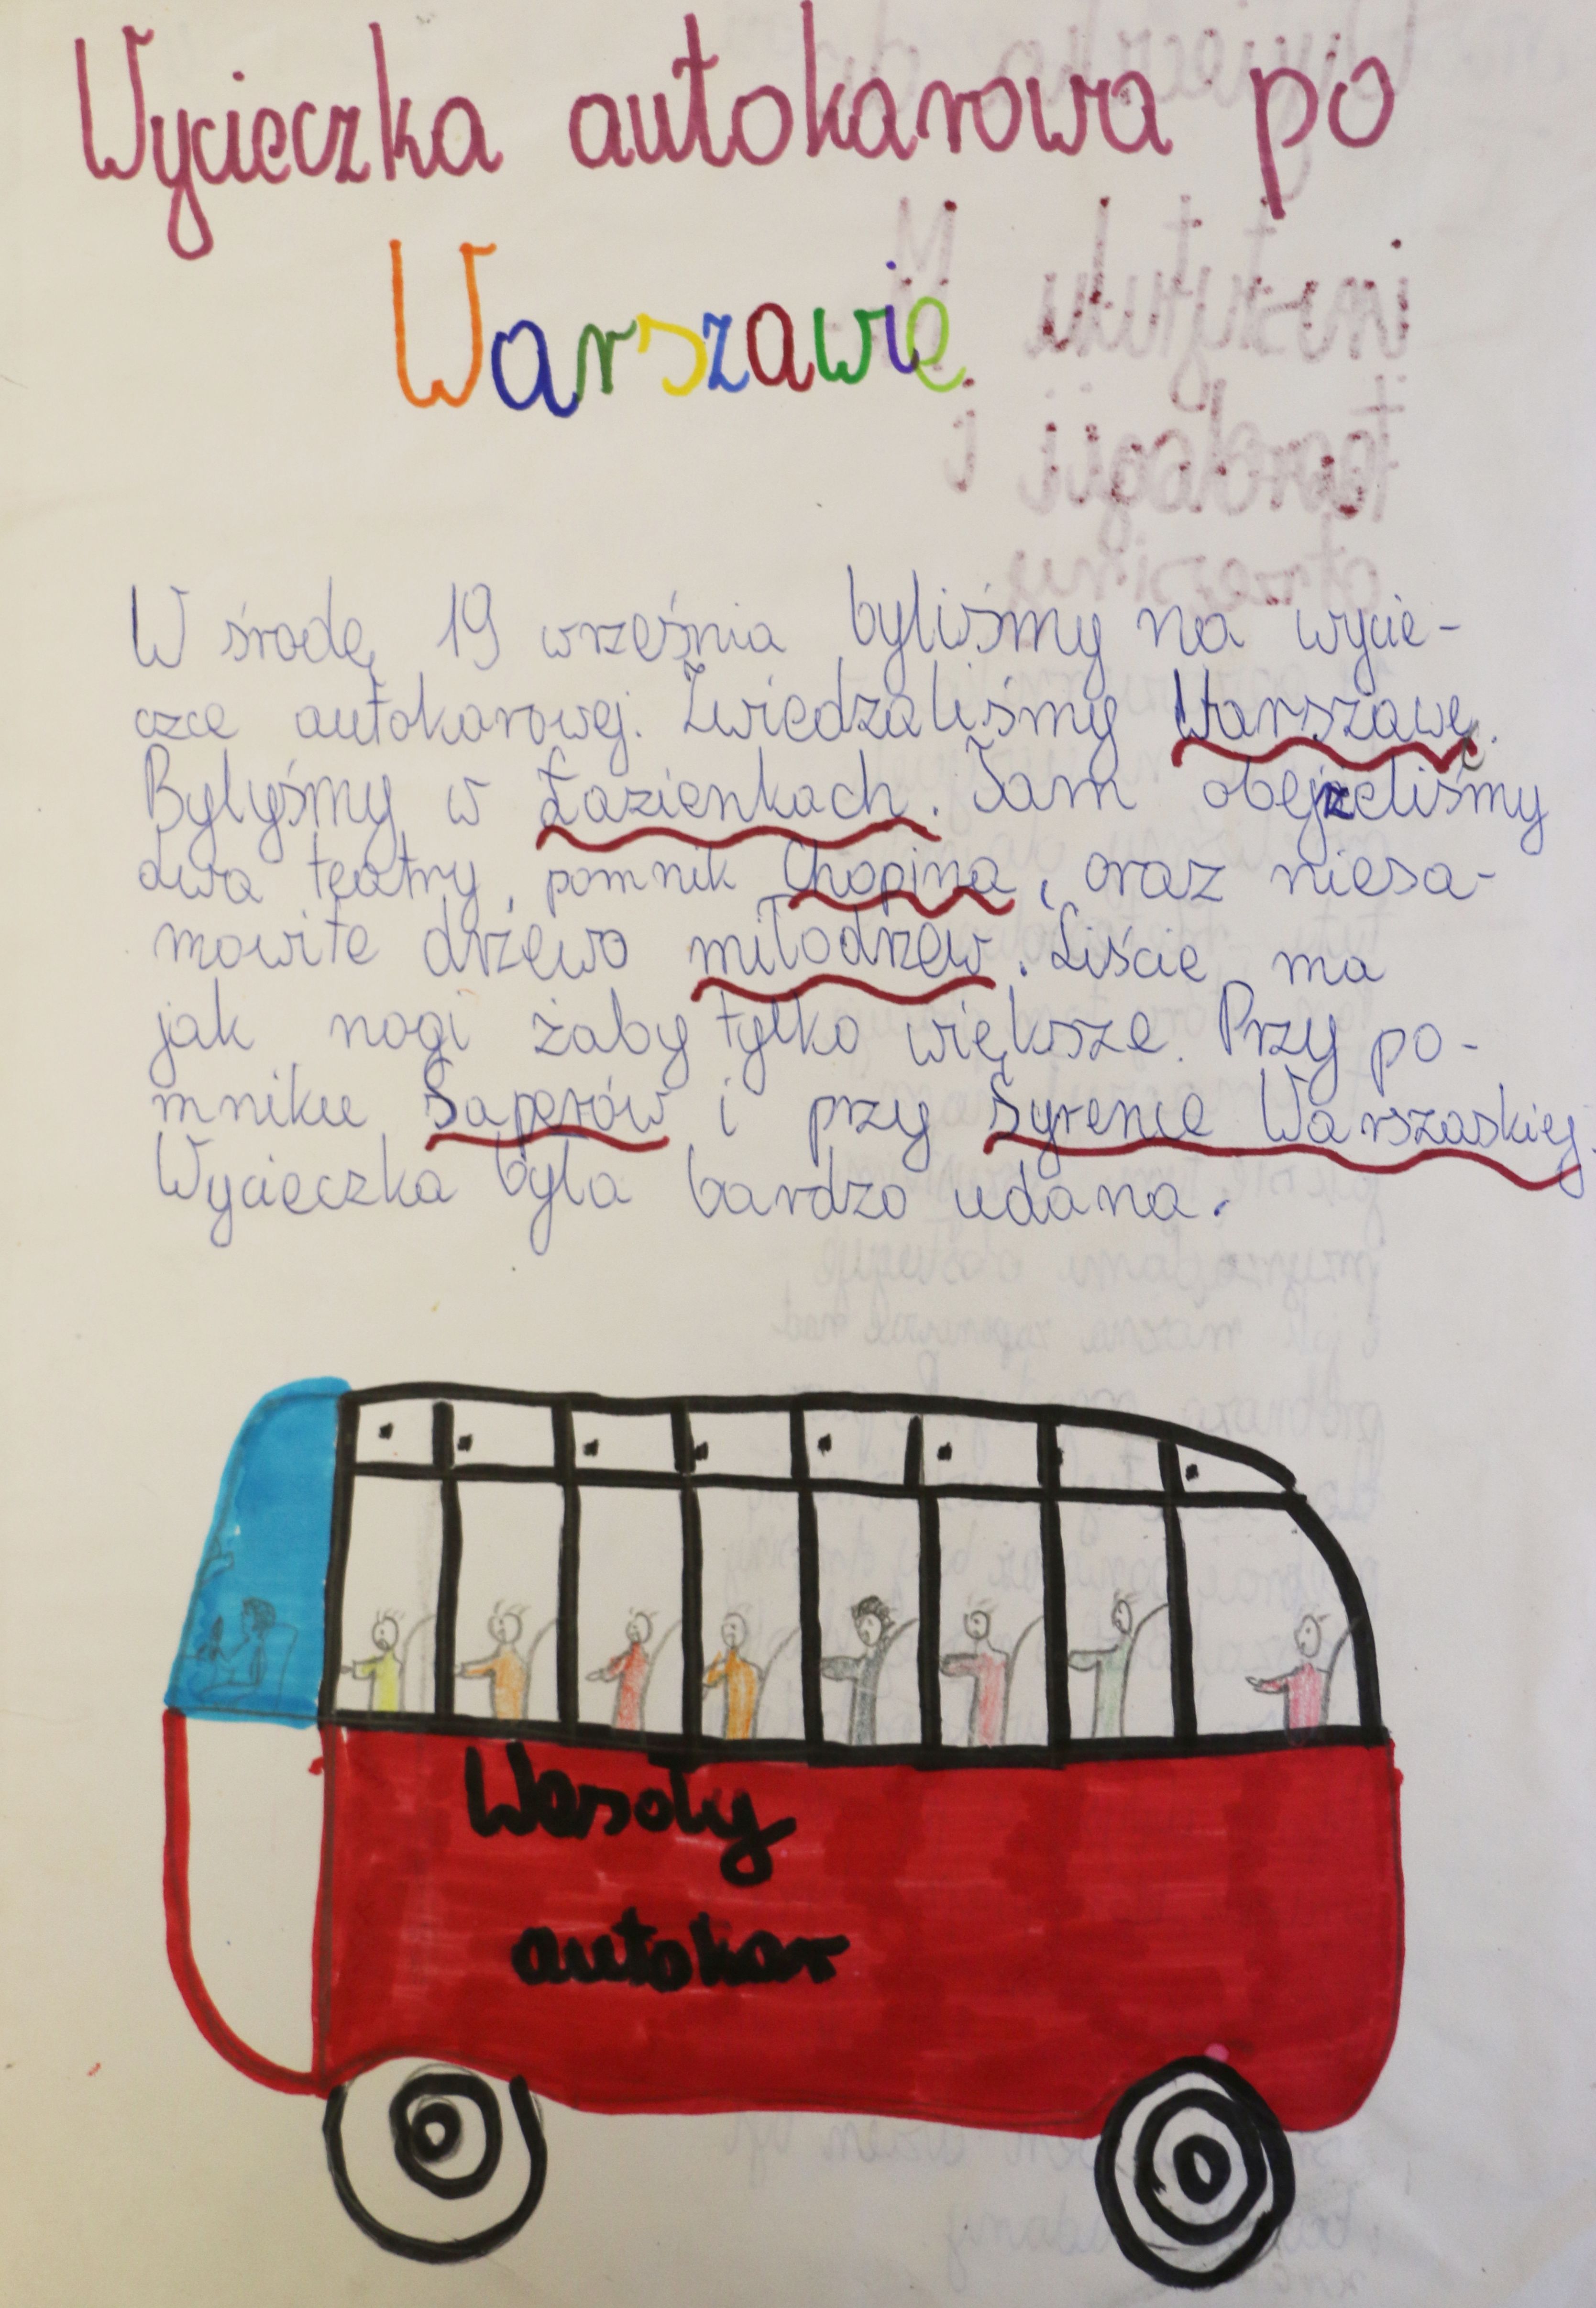 Wycieczka autokarowa po
Warszawie
W środę 19 września byliśmy na wycie-
czce autokarowej. Zwiedzaliśmy Warszawę.
Byłyśmy w Łazienkach. Tam obejrzeliśmy
dwa teatry, pomnik Chopina, oraz niesa-
mowite drzewo miłodrzew. Liście ma
jak nogi żaby tylko większe. Przy po-
mniku Saperów i przy Syrence Warszaskiej.
Wycieczka była bardzo udana.
Wesoły
autokar